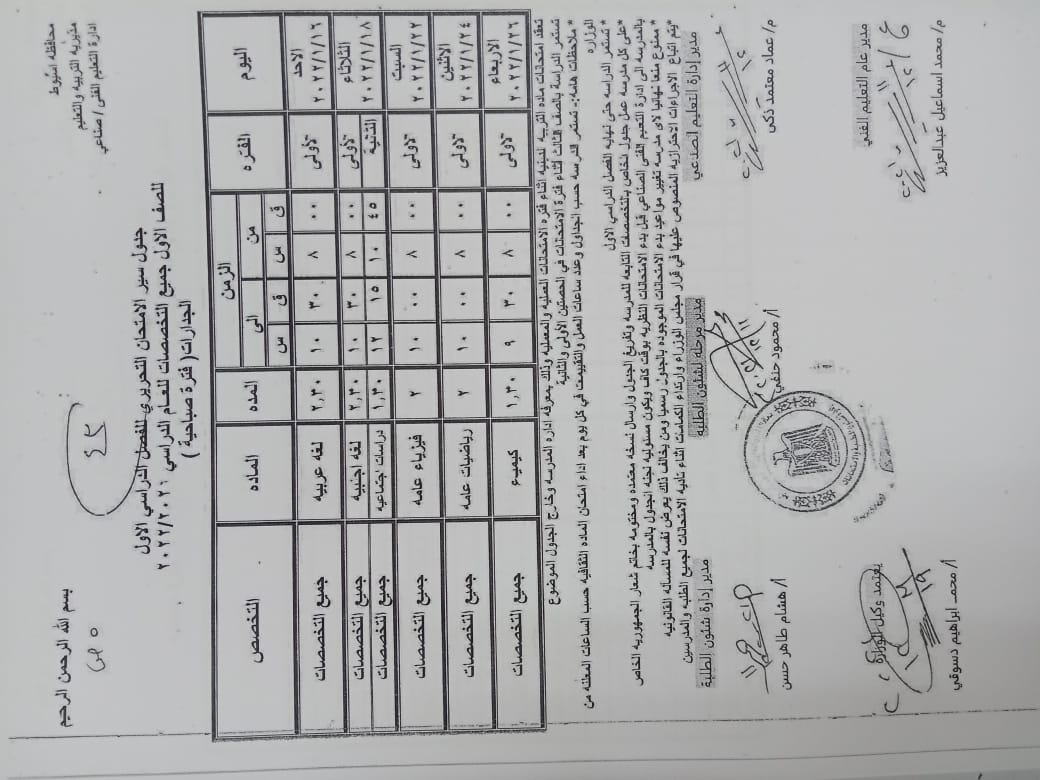 بسم الله الرحمن الرحيم
محافظه اسيوط
مديريه التربيه والتعليم
ادارة التعليم الفنى / صناعي
٤٢
جدول سير الامتحان التحريري للفصل الدراسي الاول
للصف الاول جميع التخصصات للعام الدراسي ٢٠٢٢/٢٠٢١
الجدارات ( فترة صباحية )
اليوم الفتره الزمن المده الماده التخصص
من الى
ق س ق س
الاحد ٢٠٢٢/١/١٦ الأولى ٠٠ ٨ ٣٠ ١٠ ٢,٣٠ لغه عربيه جميع التخصصات
الثلاثاء ٢٠٢٢/١/١٨ الأولى ٠٠ ٨ ٣٠ ١٠ ٢,٣٠ لغه اجنبيه جميع التخصصات
الثانية ٤٥ ١٠ ١٥ ١٢ ١,٣٠ دراسات اجتماعيه جميع التخصصات
السبت ٢٠٢٢/١/٢٢ الأولى ٠٠ ٨ ٠٠ ١٠ ٢ فيزياء عامه جميع التخصصات
الاثنين ٢٠٢٢/١/٢٤ الأولى ٠٠ ٨ ٠٠ ١٠ ٢ رياضيات عامه جميع التخصصات
الاربعاء ٢٠٢٢/١/٢٦ الأولى ٠٠ ٨ ٣٠ ٩ ١,٣٠ كيمياء جميع التخصصات
تعقد امتحانات ماده التربيه الدينيه اثناء فتره الامتحانات العمليه والمعمليه وذلك بمعرفه اداره المدرسه وخارج الجدول الموضوع
تستمر الدراسة بالصف الثالث أثناء فترة الامتحانات في الحصتين الأولى والثانية
* ملاحظات هامه:- تستمر الدرسه حسب الجداول وعدد ساعات العمل والتقييمات في كل يوم بعد اداء امتحان الماده الثقافيه حسب الساعات المعلنه من
الوزاره
* تستمر الدراسه حتى نهايه الفصل الدراسي الاول
*على كل مدرسه عمل جدول لخاص بالتخصصات التابعه للمدرسه وتفريغ الجدول وارسال نسخه معتمده ومختومه بخاتم شعار الجمهوريه الخاص
بالمدرسه الى ادارة التعليم الفنى الصناعي قبل بدء الامتحانات النظريه بوقت كاف ويكون مسئوليه لجنه الجدول بالمدرسه
*ممنوع منعا نهائيا لاى مدرسه تغيير مواعيد بدء الامتحانات الموجوده بالجدول رسميا ومن يخالف ذلك يعرض نفسه للمسأله القانونيه
*يتم اتباع الاجراءات الاحترازيه المنصوص عليها في قرار مجلس الوزراء وارتداء الكمامات اثناء تاديه الامتحانات لجميع الطلبه والمدرسين
مدير إدارة التعليم الصناعي
مدير مرحلة لشئون الطلبة
مدير إدارة شئون الطلبة
م/ عماد معتمد زكى
أ/ محمود حنفي
أ/ هشام طاهر حسن
مدير عام التعليم الفني
يعتمد وكيل الوزارة
م/ محمد اسماعيل عبدالعزيز
أ/ محمد ابراهيم دسوقي